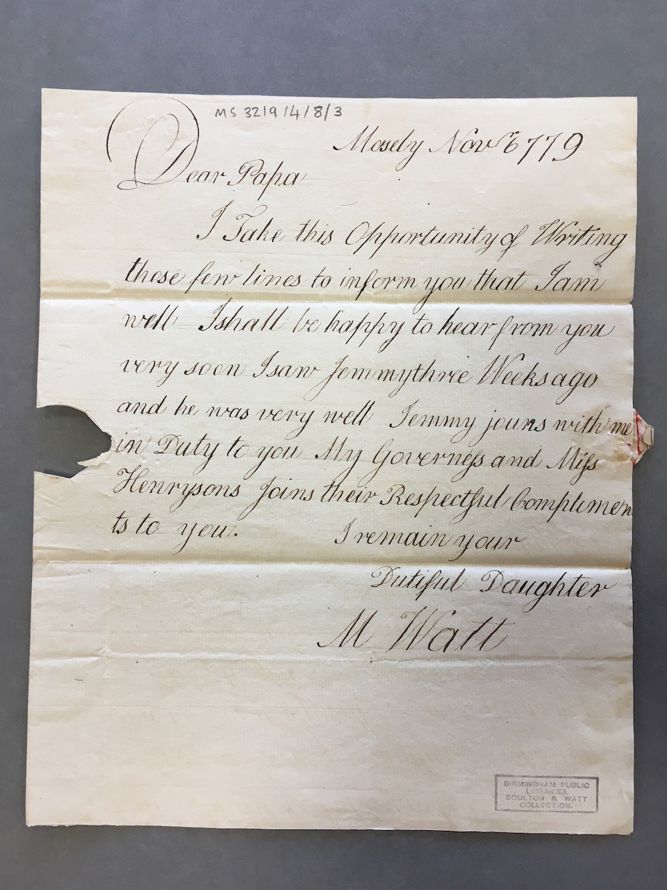 MS 3219/4/8/3
Mosely Novr 6 779
Dear Papa
I Take this Opportunity of Writing
these few lines to inform you that I am
well I shall be happy to hear from you
very soon I saw Jemmy thrie Weeks ago
and he was very well Jemmy jouns with me
in Duty to you My Governess and Miss
Henrysons Joins their Respectful Complimen
ts to you.
I remain your
Dutiful Daughter
M Watt
BIRMINGHAM PUBLIC
LIBRARIES.
BOULTON & WATT
COLLECTION.